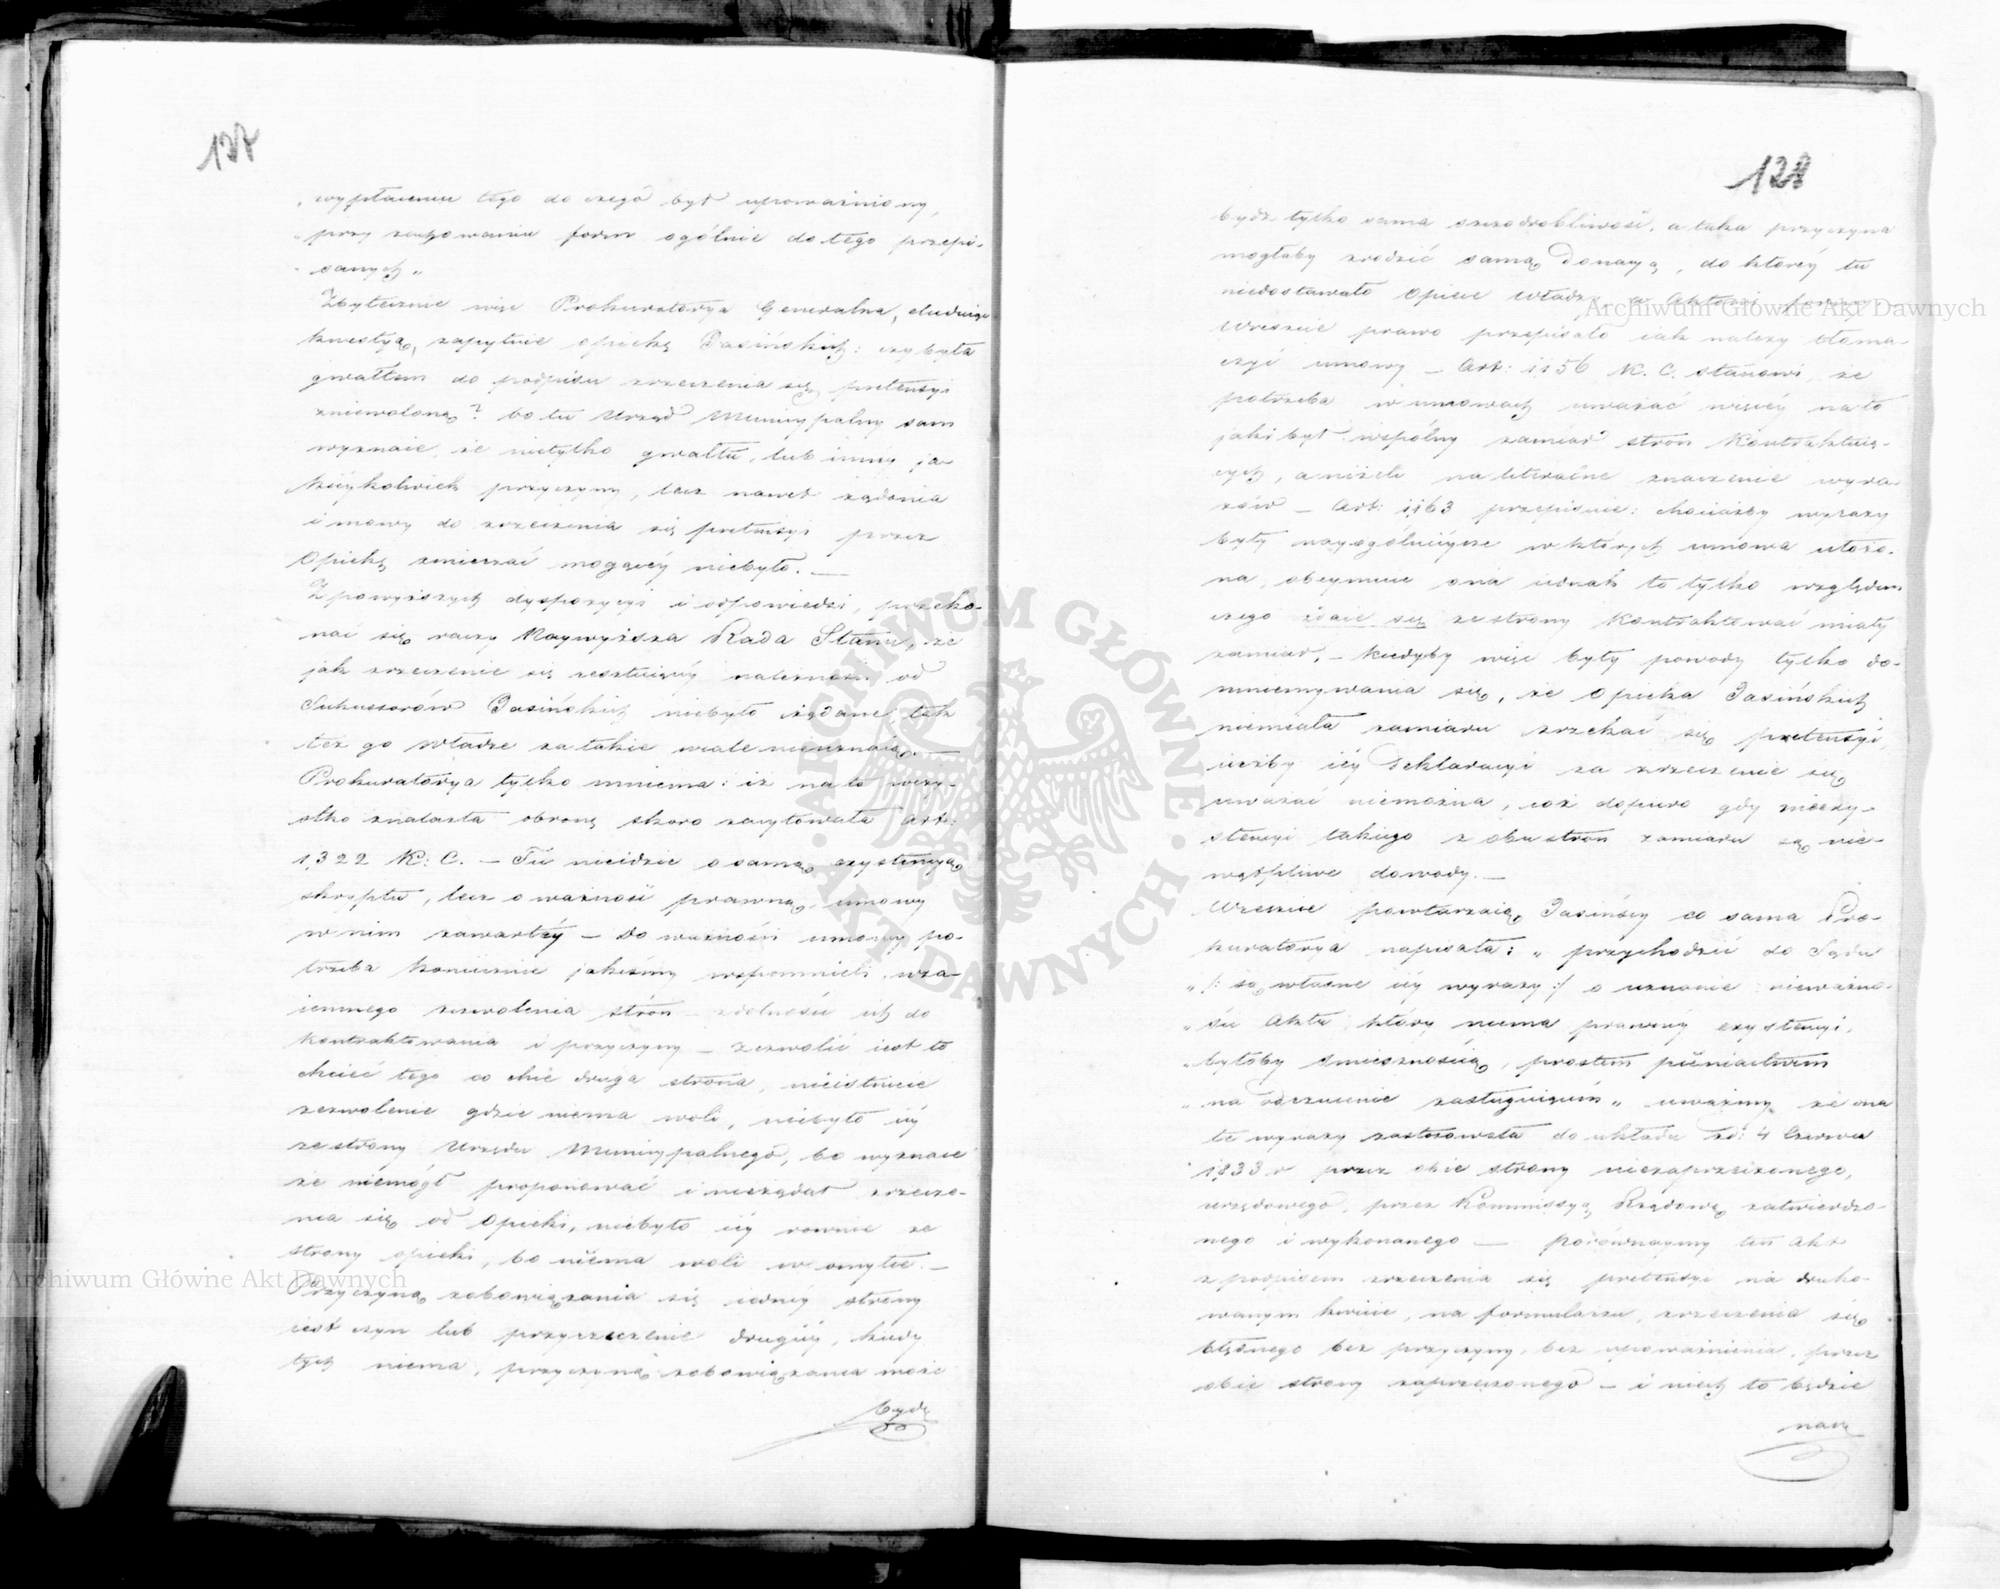 127
„ wypłaceniu tego do czego był upoważniony,
„ przy zachowaniu form ogólnie do tego przepi-
„ sanych„
Zbytecznie więc Prokuratorya Generalna, eludując
kwestyą, zapytuie opiekę Jasińskich: czy była
gwałtem do podpisu zrzeczenia się pretensyi
zniewoloną? bo tu Urząd Municypalny sam
wyznaie, że nietylko gwałtu, lub inney ja-
kieykolwiek przyczyny, lecz nawet żądania
i mowy do zrzeczenia się pretensyi przez
Opiekę zmierzać mogącéy niebyło. —
Z powyższych dyspozycyi i odpowiedzi, przeko-
nać się raczy Naywyższa Rada Stanu, że
jak zrzeczenie się resztuiącéy należności od
Sukcessorów Jasińskich niebyło żądane, tak
też go władze za takie wcale nieuznaią. —
Prokuratorya tylko mniema: iż na to wszy-
stko znalazła obronę skoro zacytowała Art:
1322 K: C. — Tu nieidzie o samą exystencyą
skryptu, lecz o ważność prawną, umowy
w nim zawartéy — Do ważności umowy po-
trzeba koniecznie jakeśmy wspomnieli, wza-
iemnego zezwolenia stron — zdolności ich do
kontraktowania i przyczyny — Zezwolić iest to
chcieć tego co chce druga strona, nieistnieie
zezwolenie gdzie niema woli, niebyło iéy
ze strony Urzędu Municypalnego, bo wyznaie
że niemógł proponować i nieżądał zrzecze-
nia się od Opieki, niebyło iéy równie ze
strony opieki, bo niema woli w omyłce. —
Przyczyną zobowiązania się iednéy strony
iest czyn lub przyrzeczenie drugiéy, kiedy
tych niema, przyczyną zobowiązania może
bydź
128
bydź tylko sama szczodrobliwość, a taka przyczyna
mogłaby zrodzić samą Donacyą, do któréy tu
niedostawało Opiece władzy, a Aktowi formy. —
Wreszcie prawo przepisało iak należy tłoma-
czyć umowy — Art: 1156 K. C. stanowi, że
potrzeba w umowach uważać więcéy na to
jaki był wspólny zamiar stron kontraktuią-
cych, aniżeli na literalne znaczenie wyra-
zów — Art: 1163 przepisuie: chociażby wyrazy
były nayogólnieysze w których umowa ułożo-
na, obeymuie ona iednak to tylko względem
czego zdaie się że strony kontraktować miały
zamiar, — Kiedyby więc były powody tylko do-
mniemywania się, że Opieka Jasińskich
niemiała zamiaru zrzekać się pretensyi,
iużby iéy Deklaracyi za zrzeczenie się
uważać niemożna, cóż dopiero gdy nieexy-
stencyi takiego z obu stron zamiaru są nie-
wątpliwe dowody. —
Wreszcie powtarzaią Jasińscy co sama Pro-
kuratorya napisała: „ przychodzić do Sądu
„ /: są własne iéy wyrazy :/ o uznanie nieważno-
„ ści Aktu który niema prawnéy exystencyi,
„ byłoby śmiesznością, prostem pieniactwem
„ na odrzucenie zasługuiącém „ uważmy że ona
te wyrazy zastosowała do układu z d: 4 Czerwca
1833 r przez obie strony niezaprzeczonego,
urzędowego, przez Kommissyą Rządową zatwierdzo-
nego i wykonanego — porównaymy ten Akt
z podpisem zrzeczenia się pretensyi na druko-
wanym kwicie, na formularzu, zrzeczenia się
błędnego bez przyczyny, bez upoważnienia, przez
obie strony zaprzeczonego — i niech to będzie
nasz
Archiwum Główne Akt Dawnych
Archiwum Główne Akt Dawnych
ARCHIWUM GŁÓWNE · AKT DAWNYCH ·